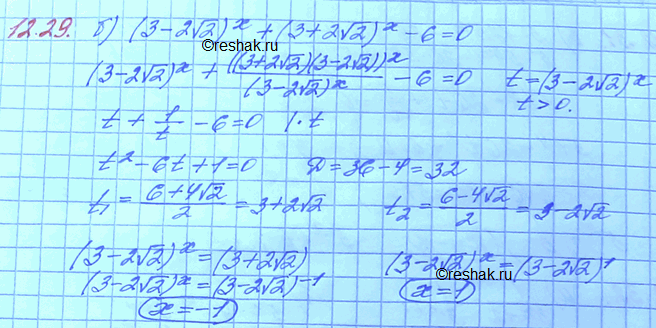 12.29. б) (3-2√2)^x + (3+2√2)^x - 6 = 0
©reshak.ru
(3-2√2)^x + ((3+2√2)(3-2√2))^x / (3-2√2)^x - 6 = 0 t = (3-2√2)^x
t > 0.
t + 1/t - 6 = 0 |·t
t² - 6t + 1 = 0 D = 36 - 4 = 32
t₁ = (6+4√2)/2 = 3+2√2 t₂ = (6-4√2)/2 = 3-2√2
(3-2√2)^x = (3+2√2) (3-2√2)^x = (3-2√2)^1
©reshak.ru
(3-2√2)^x = (3-2√2)^-1 x = 1
x = -1